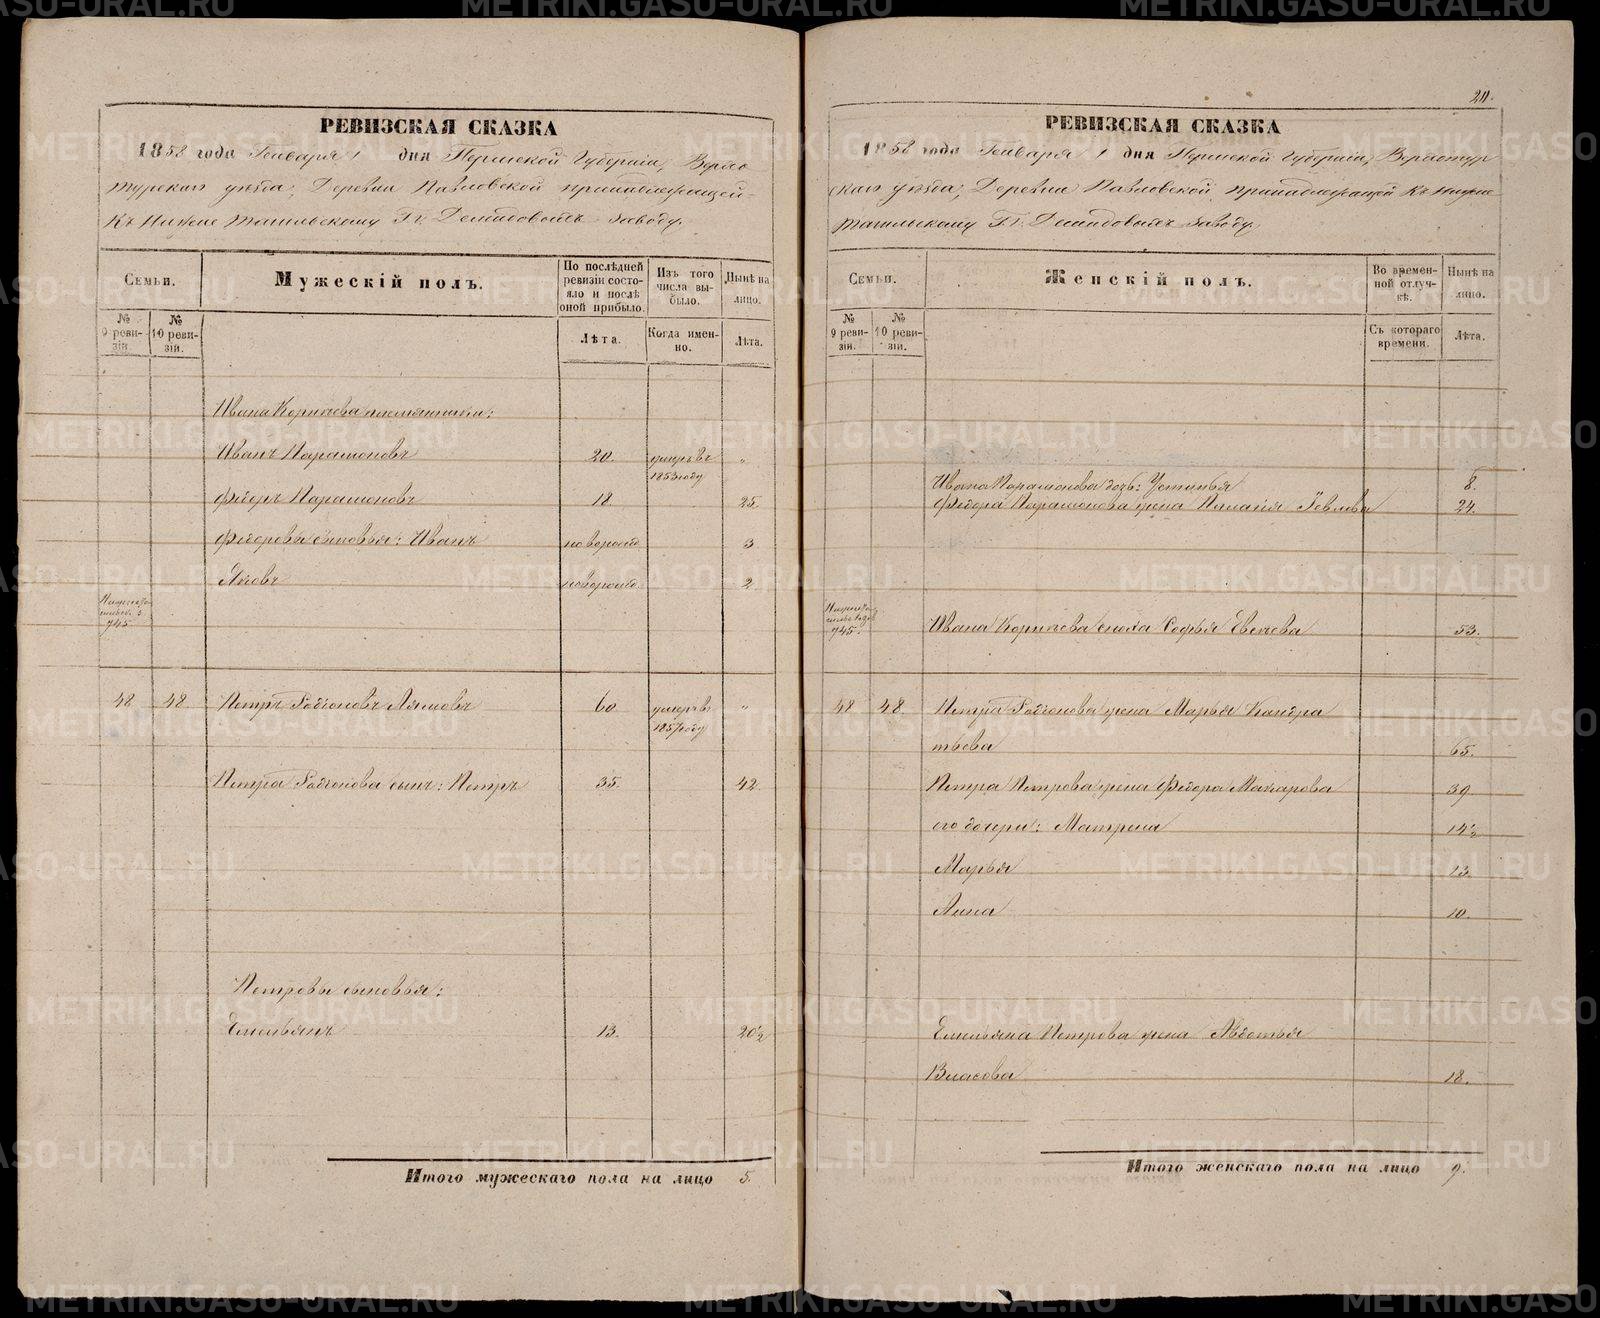 РЕВИЗСКАЯ СКАЗКА
1858 года Генваря 1 дня Пермской Губерніи, Верхо
турскаго уѣзда, Деревни Павловской принадлежащей
къ Нижне Тагильскому Гг. Демидовыхъ заводу.
Семьи.
Мужескій полъ.
По послѣдней ревизіи состояло и послѣ оной прибыло.
Изъ того числа выбыло.
Нынѣ на лицо.
№ 9 ревизіи.
№ 10 ревизіи.
Лѣта.
Когда именно.
Лѣта.
Ивана племянники:
Иванъ Парамоновъ 20. умеръ въ 1853 году "
Федоръ Парамоновъ 18. 25.
Федоровы сыновья: Иванъ новорожд. 3
Яковъ новорожд. 2
745
48 48 Петръ Родіоновъ 60 умеръ въ 1857 году "
Петра Родіонова сынъ: Петръ 35. 42.
Петровы сыновья:
Емельянъ 13. 20½
Итого мужескаго пола на лицо 5.
20.
РЕВИЗСКАЯ СКАЗКА
1858 года Генваря 1 дня Пермской Губерніи, Верхотур
скаго уѣзда, Деревни Павловской принадлежащей къ Нижне
Тагильскому Гг. Демидовыхъ заводу.
Семьи.
Женскій полъ.
Во временной отлучкѣ.
Нынѣ на лицо.
№ 9 ревизіи.
№ 10 ревизіи.
Съ котораго времени.
Лѣта.
Ивана Парамонова дочь: Устинья 8.
Федора Парамонова жена Пелагія 24.
745.
Ивана сноха Софья 53.
48 48. Петра Родіонова жена Марья Кондра
тьева 65.
Петра Петрова жена Федора Макарова 39
его дочери: Матрена 14½
Марья 13.
Анна 10.
Емельяна Петрова жена Авдотья
Власова 18.
Итого женскаго пола на лицо 9.
METRIKI.GASO-URAL.RU